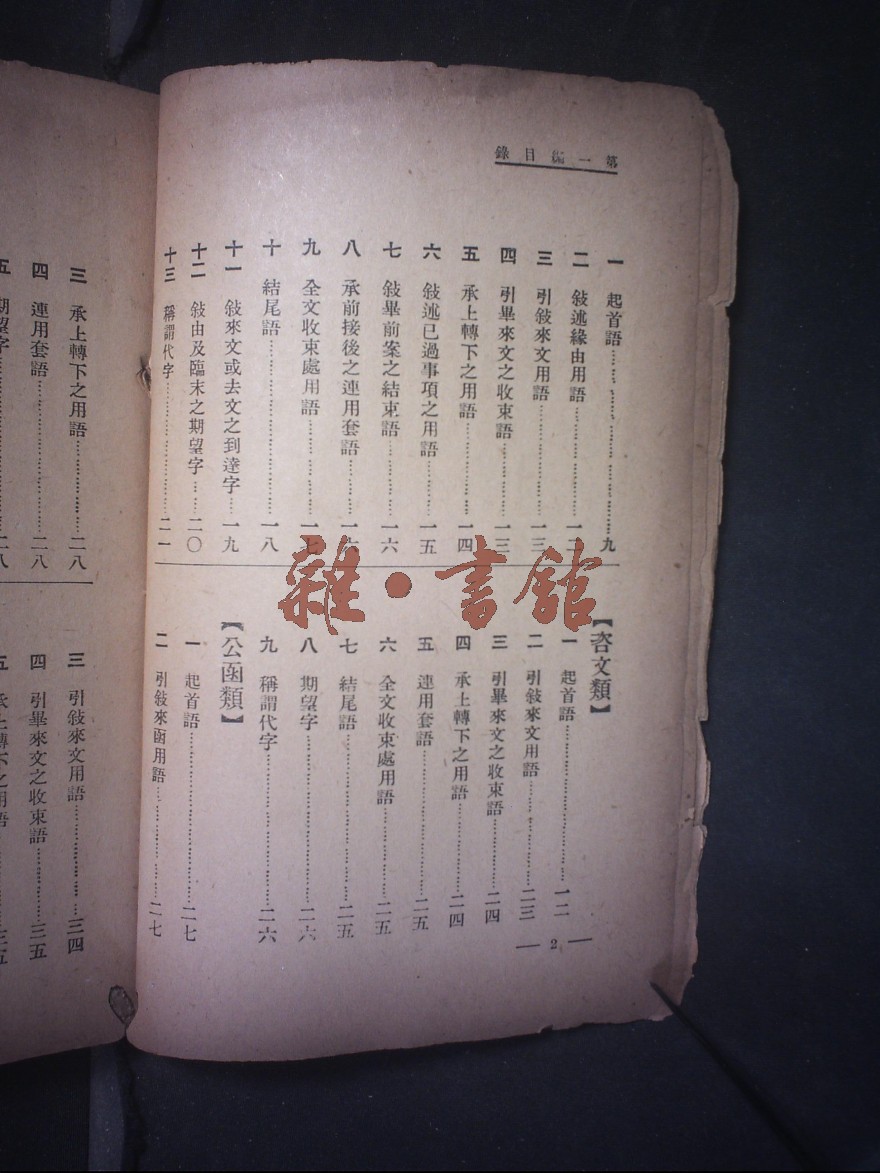 第一編目錄
一 起首語……九
二 敍述緣由用語……一二
三 引敍來文用語……一三
四 引畢來文之收束語……一三
五 承上轉下之用語……一四
六 敍述已過事項之用語……一五
七 敍畢前案之結束語……一六
八 承前接後之連用套語……一六
九 全文收束處用語……一七
十 結尾語……一八
十一 敍來文或去文之到達字……一九
十二 敍由及臨末之期望字……二〇
十三 稱謂代字……二一
【咨文類】
一 起首語……二二
二 引敍來文用語……二三
三 引畢來文之收束語……二四
四 承上轉下之用語……二四
五 連用套語……二五
六 全文收束處用語……二五
七 結尾語……二五
八 期望字……二六
九 稱謂代字……二六
【公函類】
一 起首語……二七
二 引敍來函用語……二七
2
三 承上轉下之用語……二八
四 連用套語……二八
五 期望字……二八
三 引敍來文用語……三四
四 引畢來文之收束語……三五
五 承上轉下之用語……三五
雜·書館